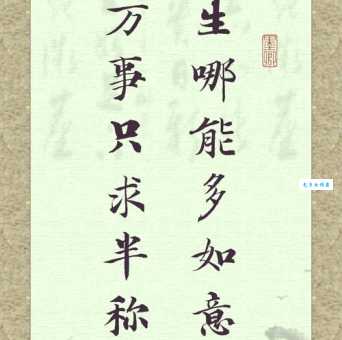 生哪能多如意
万事只求半称